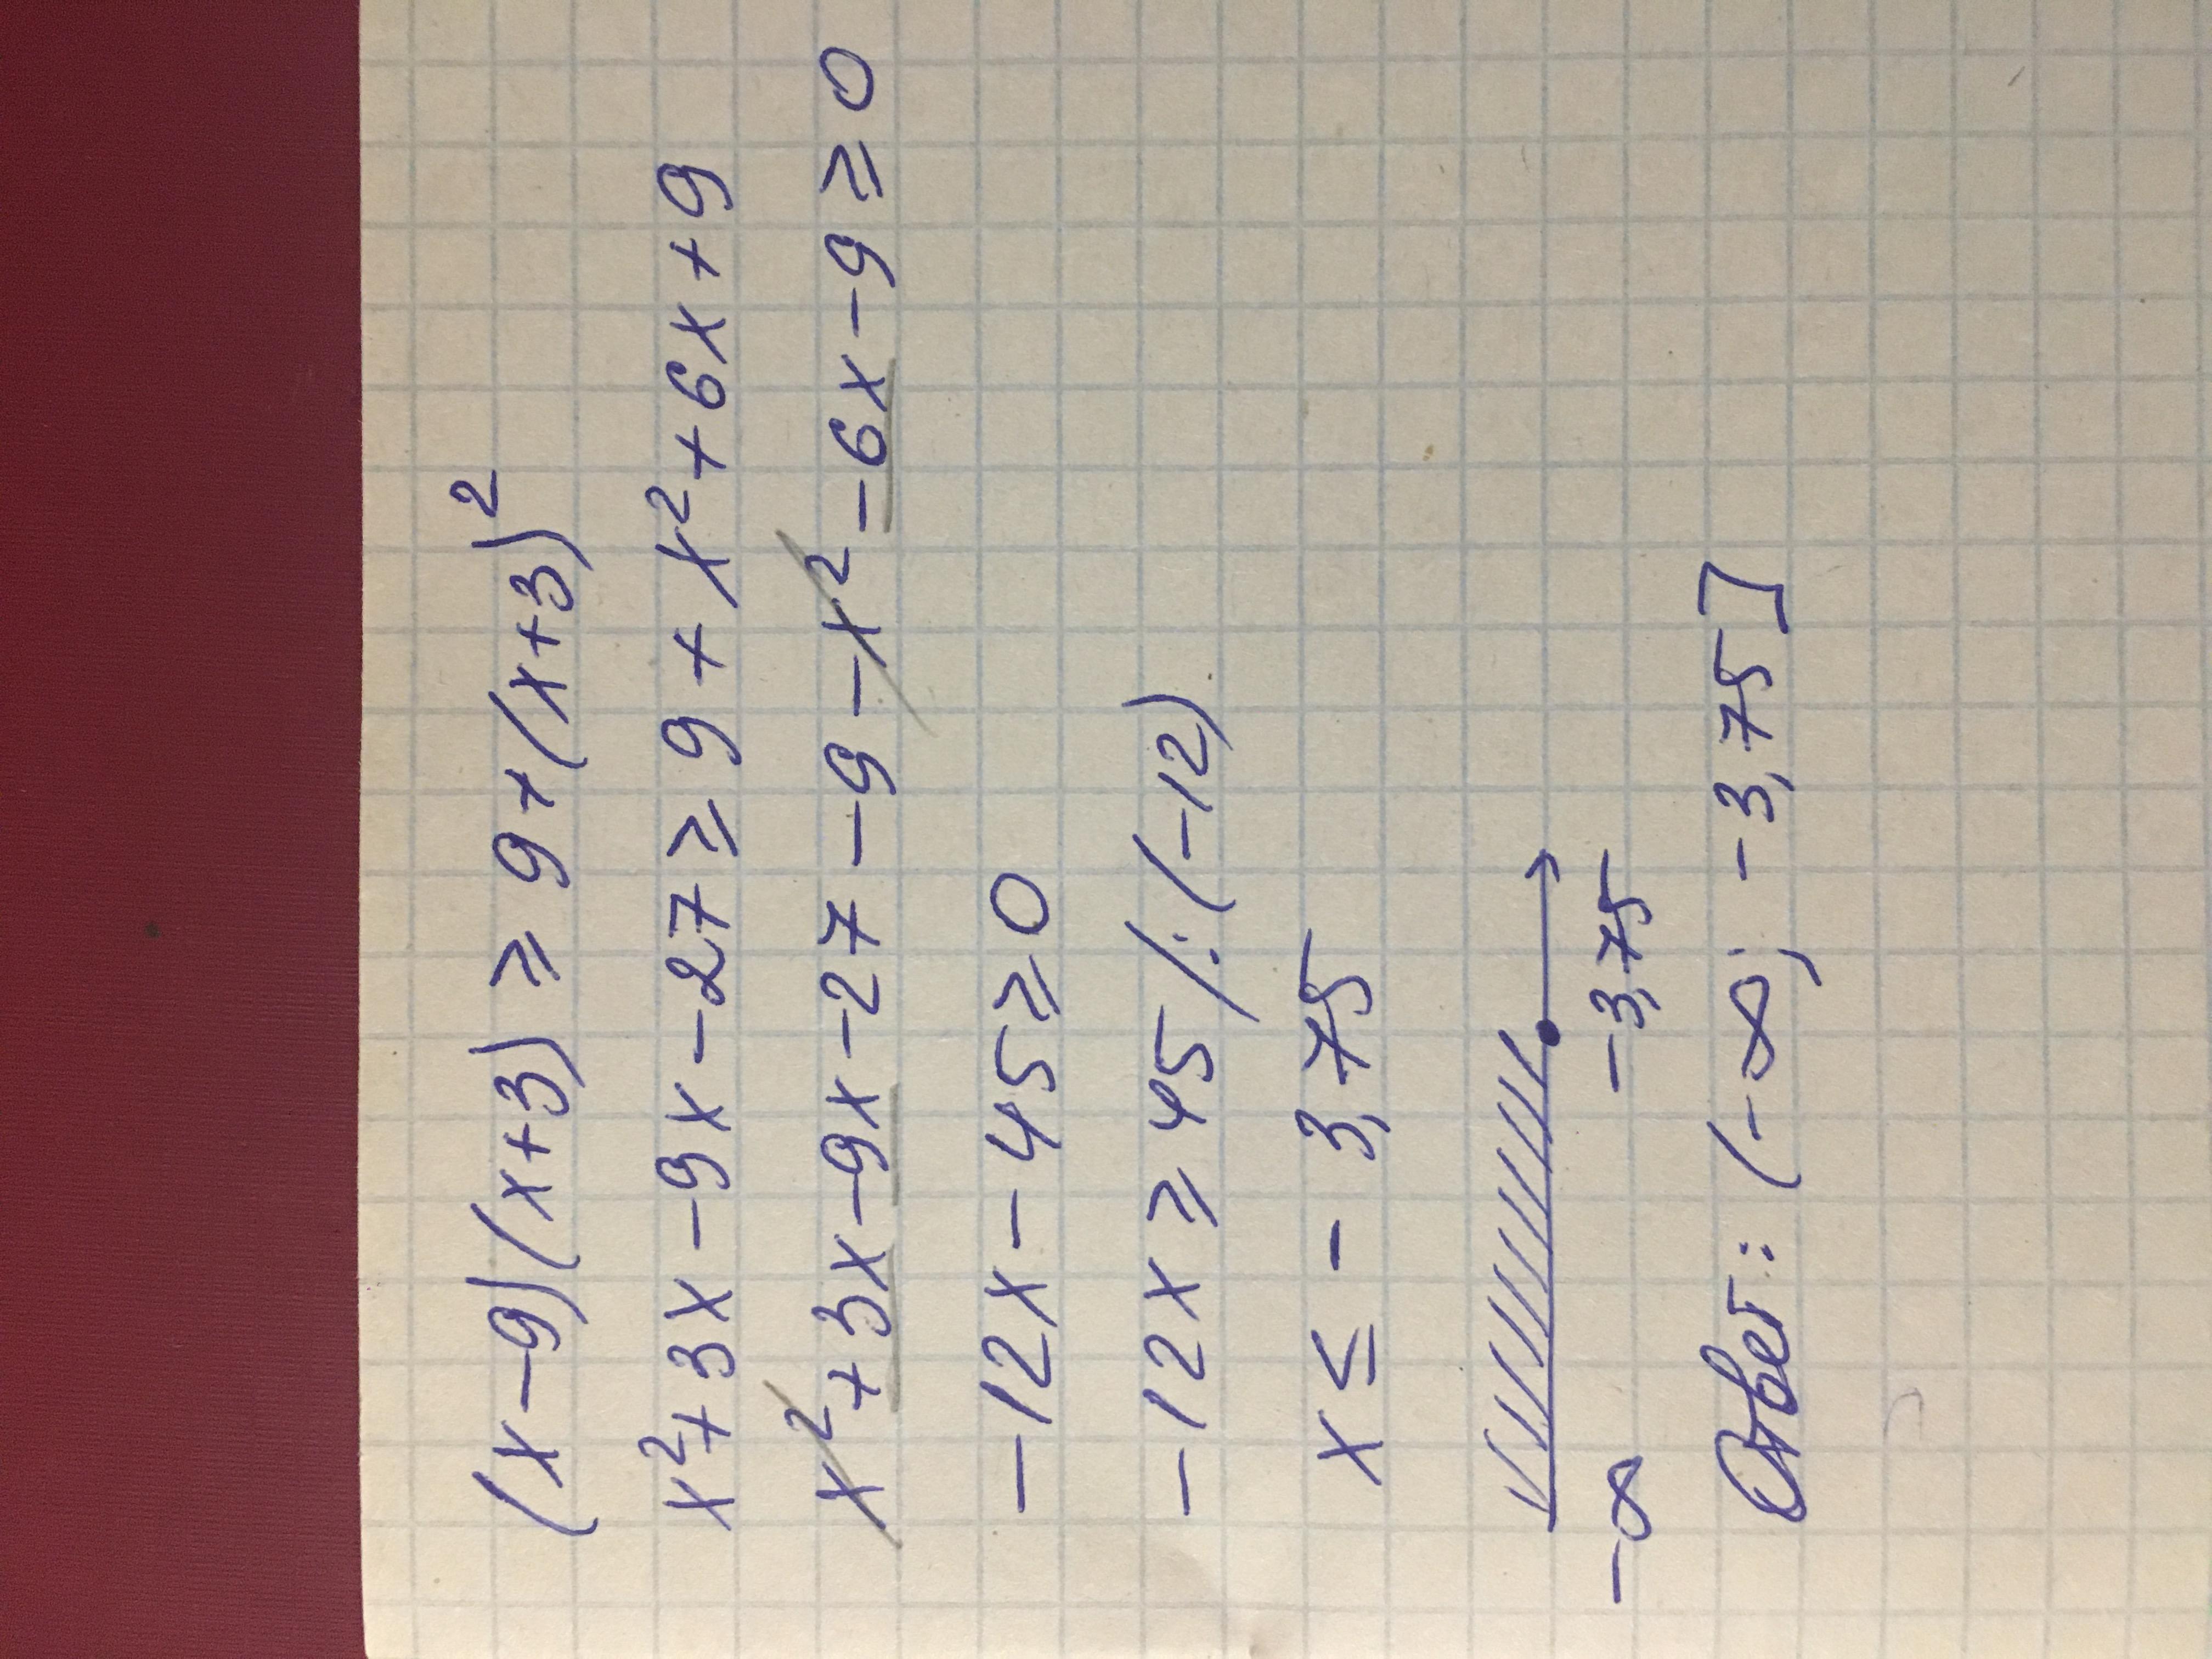 (x-9)(x+3) ≥ 9+(x+3)²
x²+3x-9x-27 ≥ 9+x²+6x+9
x²+3x-9x-27-9-x²-6x-9 ≥ 0
-12x-45 ≥ 0
-12x ≥ 45 /:(-12)
x ≤ -3,75
-∞ -3,75
Ответ: (-∞; -3,75]